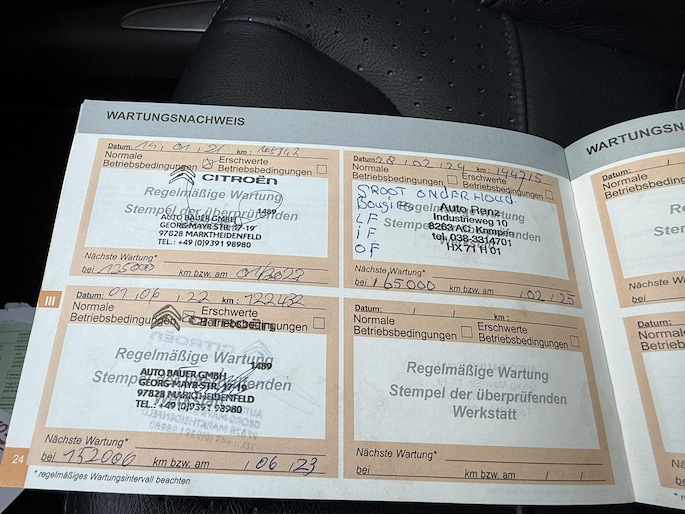 WARTUNGSNACHWEIS
Datum: 14, 01, 21 km:
Normale Betriebsbedingungen Erschwerte Betriebsbedingungen
CITROËN
Regelmäßige Wartung
1489
Stempel der überprüfenden
AUTO BAUER GMBH
GEORG-MAYR-STR. 17-19
97828 MARKTHEIDENFELD
TEL.: +49 (0)9391 98980
Nächste Wartung*
bei 135000 km bzw. am 01/2023
III
Datum: 01, 06, 22 km: 122432
Normale Betriebsbedingungen Erschwerte Betriebsbedingungen
CITROËN
Regelmäßige Wartung
1489
Stempel der überprüfenden
AUTO BAUER GMBH
GEORG-MAYR-STR. 17-19
97828 MARKTHEIDENFELD
TEL.: +49 (0)9391 98980
Nächste Wartung*
bei 152000 km bzw. am , 06, 23
24
* regelmäßiges Wartungsintervall beachten
Datum: 28, 02, 24 km: 144715
Normale Betriebsbedingungen Erschwerte Betriebsbedingungen
GROOT ONDERHOUD.
Bougies
LF
iF
OF
Regelmäßige Wartung
Stempel der überprüfenden
Auto Renz
Industrieweg 10
8263 AC Kampen
tel. 038-3314701
HX 71 H 01
Nächste Wartung*
bei 165000 km bzw. am , 02, 25
Datum: / / km:
Normale Betriebsbedingungen Erschwerte Betriebsbedingungen
Regelmäßige Wartung
Stempel der überprüfenden
Werkstatt
Nächste Wartung*
bei km bzw. am / /
WARTUNGSN
Datum: /
Normale
Betriebsbedingungen
Reg
Stempe
Nächste Wartung*
bei
Datum: /
Normale
Betriebsbeding
Re
Stemp
Nächste Wartung*
bei